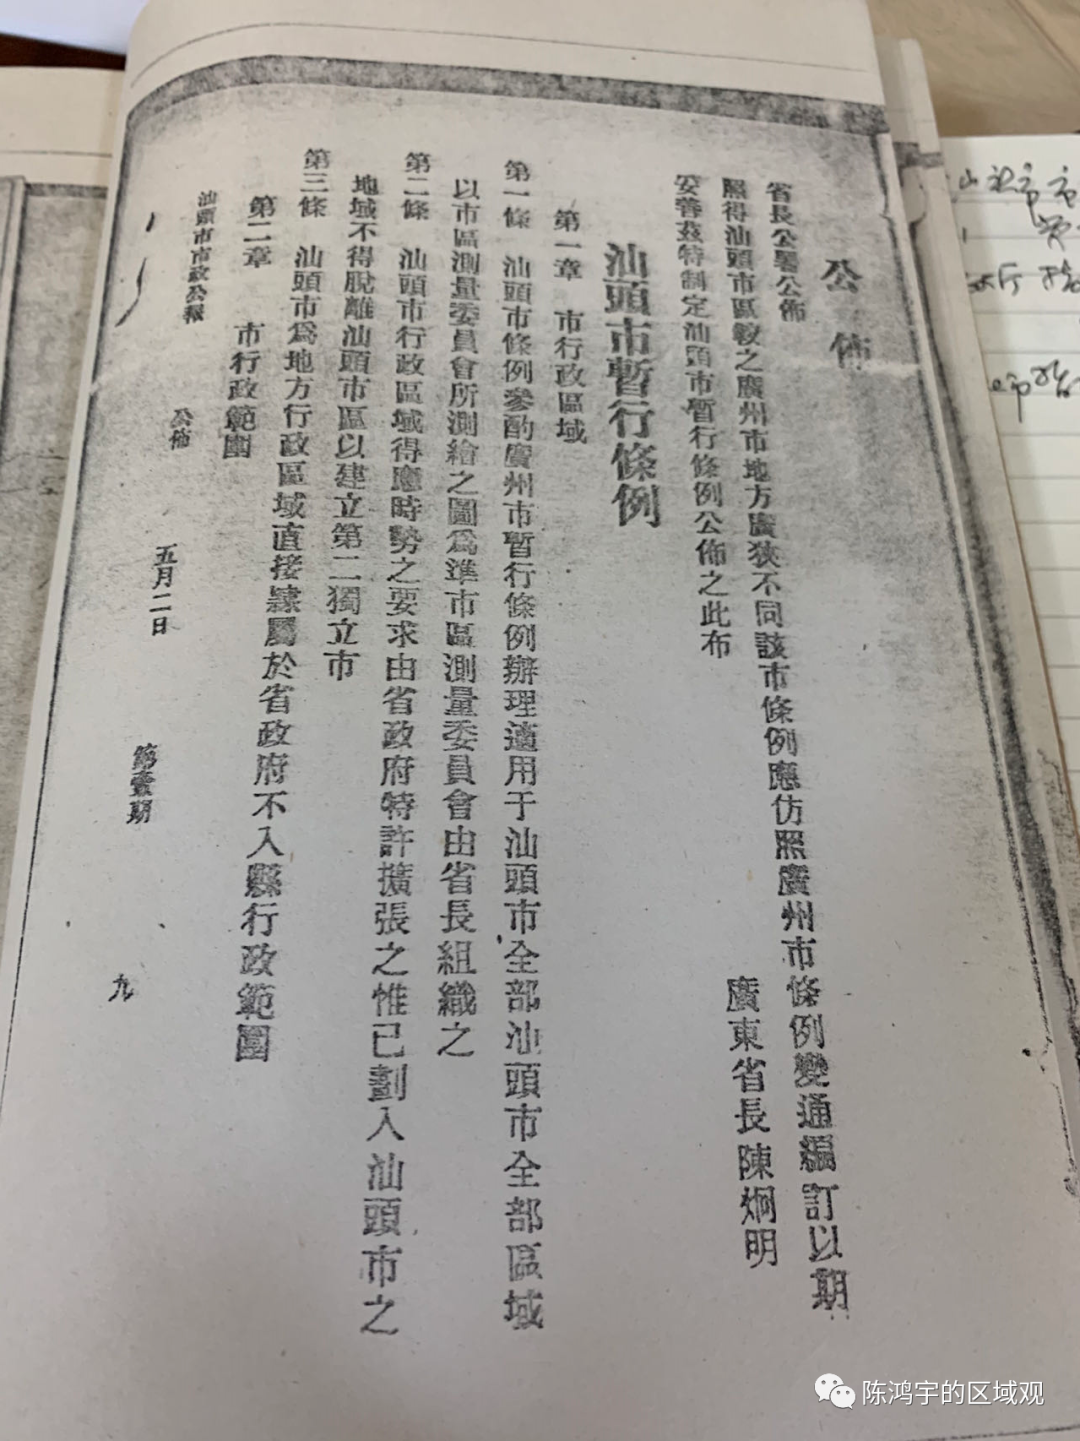 公佈
省長公署公佈
照得汕頭市區較之廣州市地方廣狹不同該市條例應仿照廣州市條例變通編訂以期
妥善茲特制定汕頭市暫行條例公佈之此布
廣東省長陳炯明
汕頭市暫行條例
第一章 市行政區域
第一條 汕頭市條例參酌廣州市暫行條例辦理適用于汕頭市全部汕頭市全部區域
以市區測量委員會所測繪之圖爲準市區測量委員會由省長組織之
第二條 汕頭市行政區域得應時勢之要求由省政府特許擴張之惟已劃入汕頭市之
地域不得脫離汕頭市區以建立第二獨立市
第三條 汕頭市爲地方行政區域直接隸屬於省政府不入縣行政範圍
第二章 市行政範圍
汕頭市市政公報 公佈 五月二日 第壹期 九
市
陈鸿宇的区域观